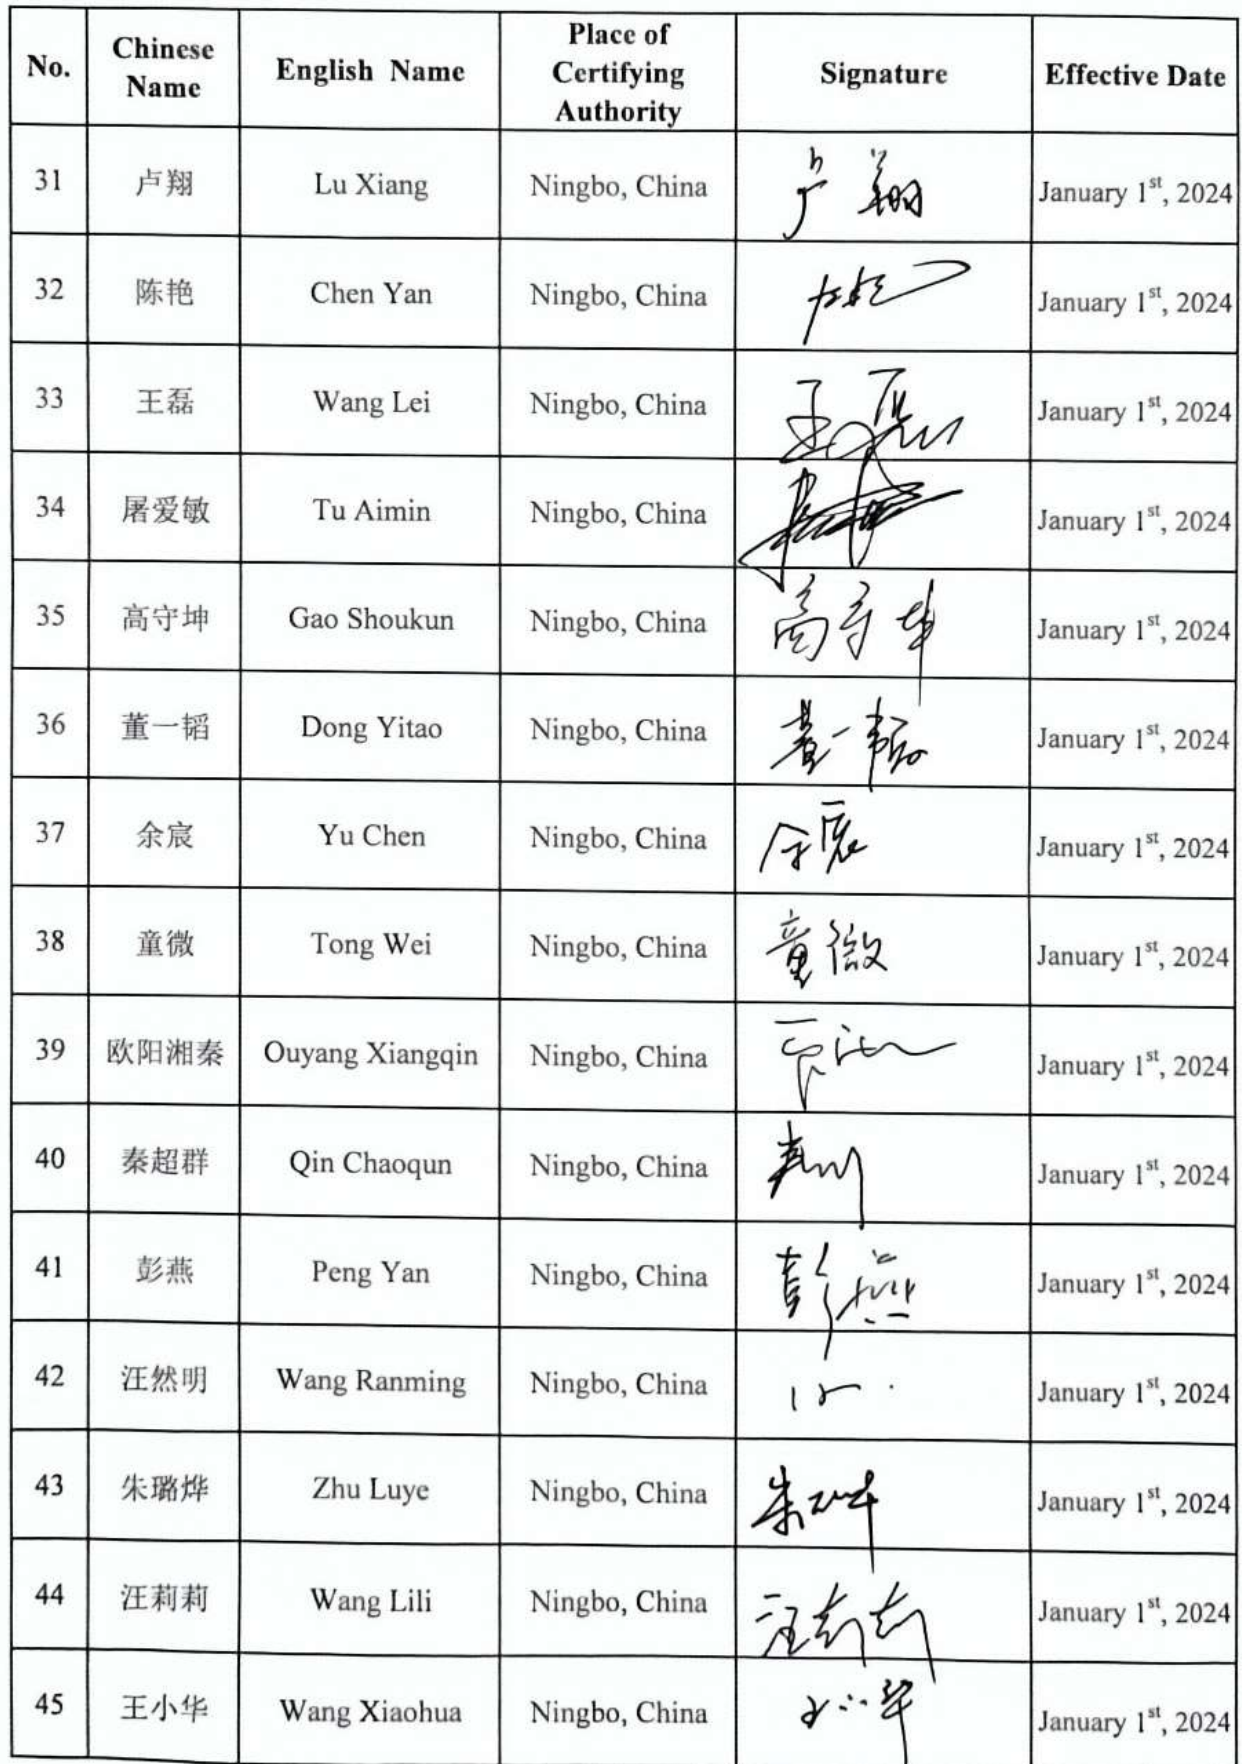 No. Chinese Name English Name Place of Certifying Authority Signature Effective Date
31 卢翔 Lu Xiang Ningbo, China 卢翔 January 1st, 2024
32 陈艳 Chen Yan Ningbo, China January 1st, 2024
33 王磊 Wang Lei Ningbo, China 王磊 January 1st, 2024
34 屠爱敏 Tu Aimin Ningbo, China January 1st, 2024
35 高守坤 Gao Shoukun Ningbo, China 高守坤 January 1st, 2024
36 董一韬 Dong Yitao Ningbo, China 董一韬 January 1st, 2024
37 余宸 Yu Chen Ningbo, China 余宸 January 1st, 2024
38 童微 Tong Wei Ningbo, China 童微 January 1st, 2024
39 欧阳湘秦 Ouyang Xiangqin Ningbo, China January 1st, 2024
40 秦超群 Qin Chaoqun Ningbo, China January 1st, 2024
41 彭燕 Peng Yan Ningbo, China 彭燕 January 1st, 2024
42 汪然明 Wang Ranming Ningbo, China January 1st, 2024
43 朱璐烨 Zhu Luye Ningbo, China January 1st, 2024
44 汪莉莉 Wang Lili Ningbo, China 汪莉莉 January 1st, 2024
45 王小华 Wang Xiaohua Ningbo, China 王小华 January 1st, 2024